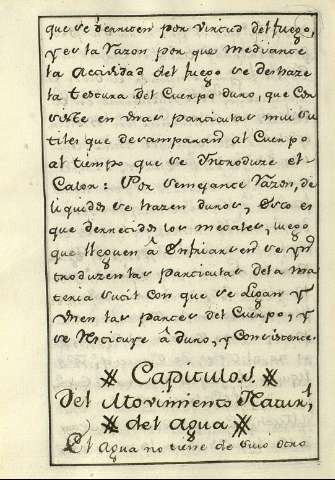 que se derriten por virtud del fuego,
y es la razon por que mediante
la Actividad del fuego se deshaze
la testura del Cuerpo duro, que Con
siste en unas particulas mui su
tiles que desamparan al Cuerpo
al tiempo que se Yntroduze el
Calor: Por semejante razon, de
liquidos se hazen duros, Esto es
que derretidos los metales, luego
que lleguen â Enfriarse se yn
troduzen las particulas dela ma
teria sutil Con que se Ligan y
vnen las partes del Cuerpo, y
se restituye â duro, y Consistente.
Capitulo.I.
Del Movimiento Naturl,
del agua
El Agua no tiene de suio otro